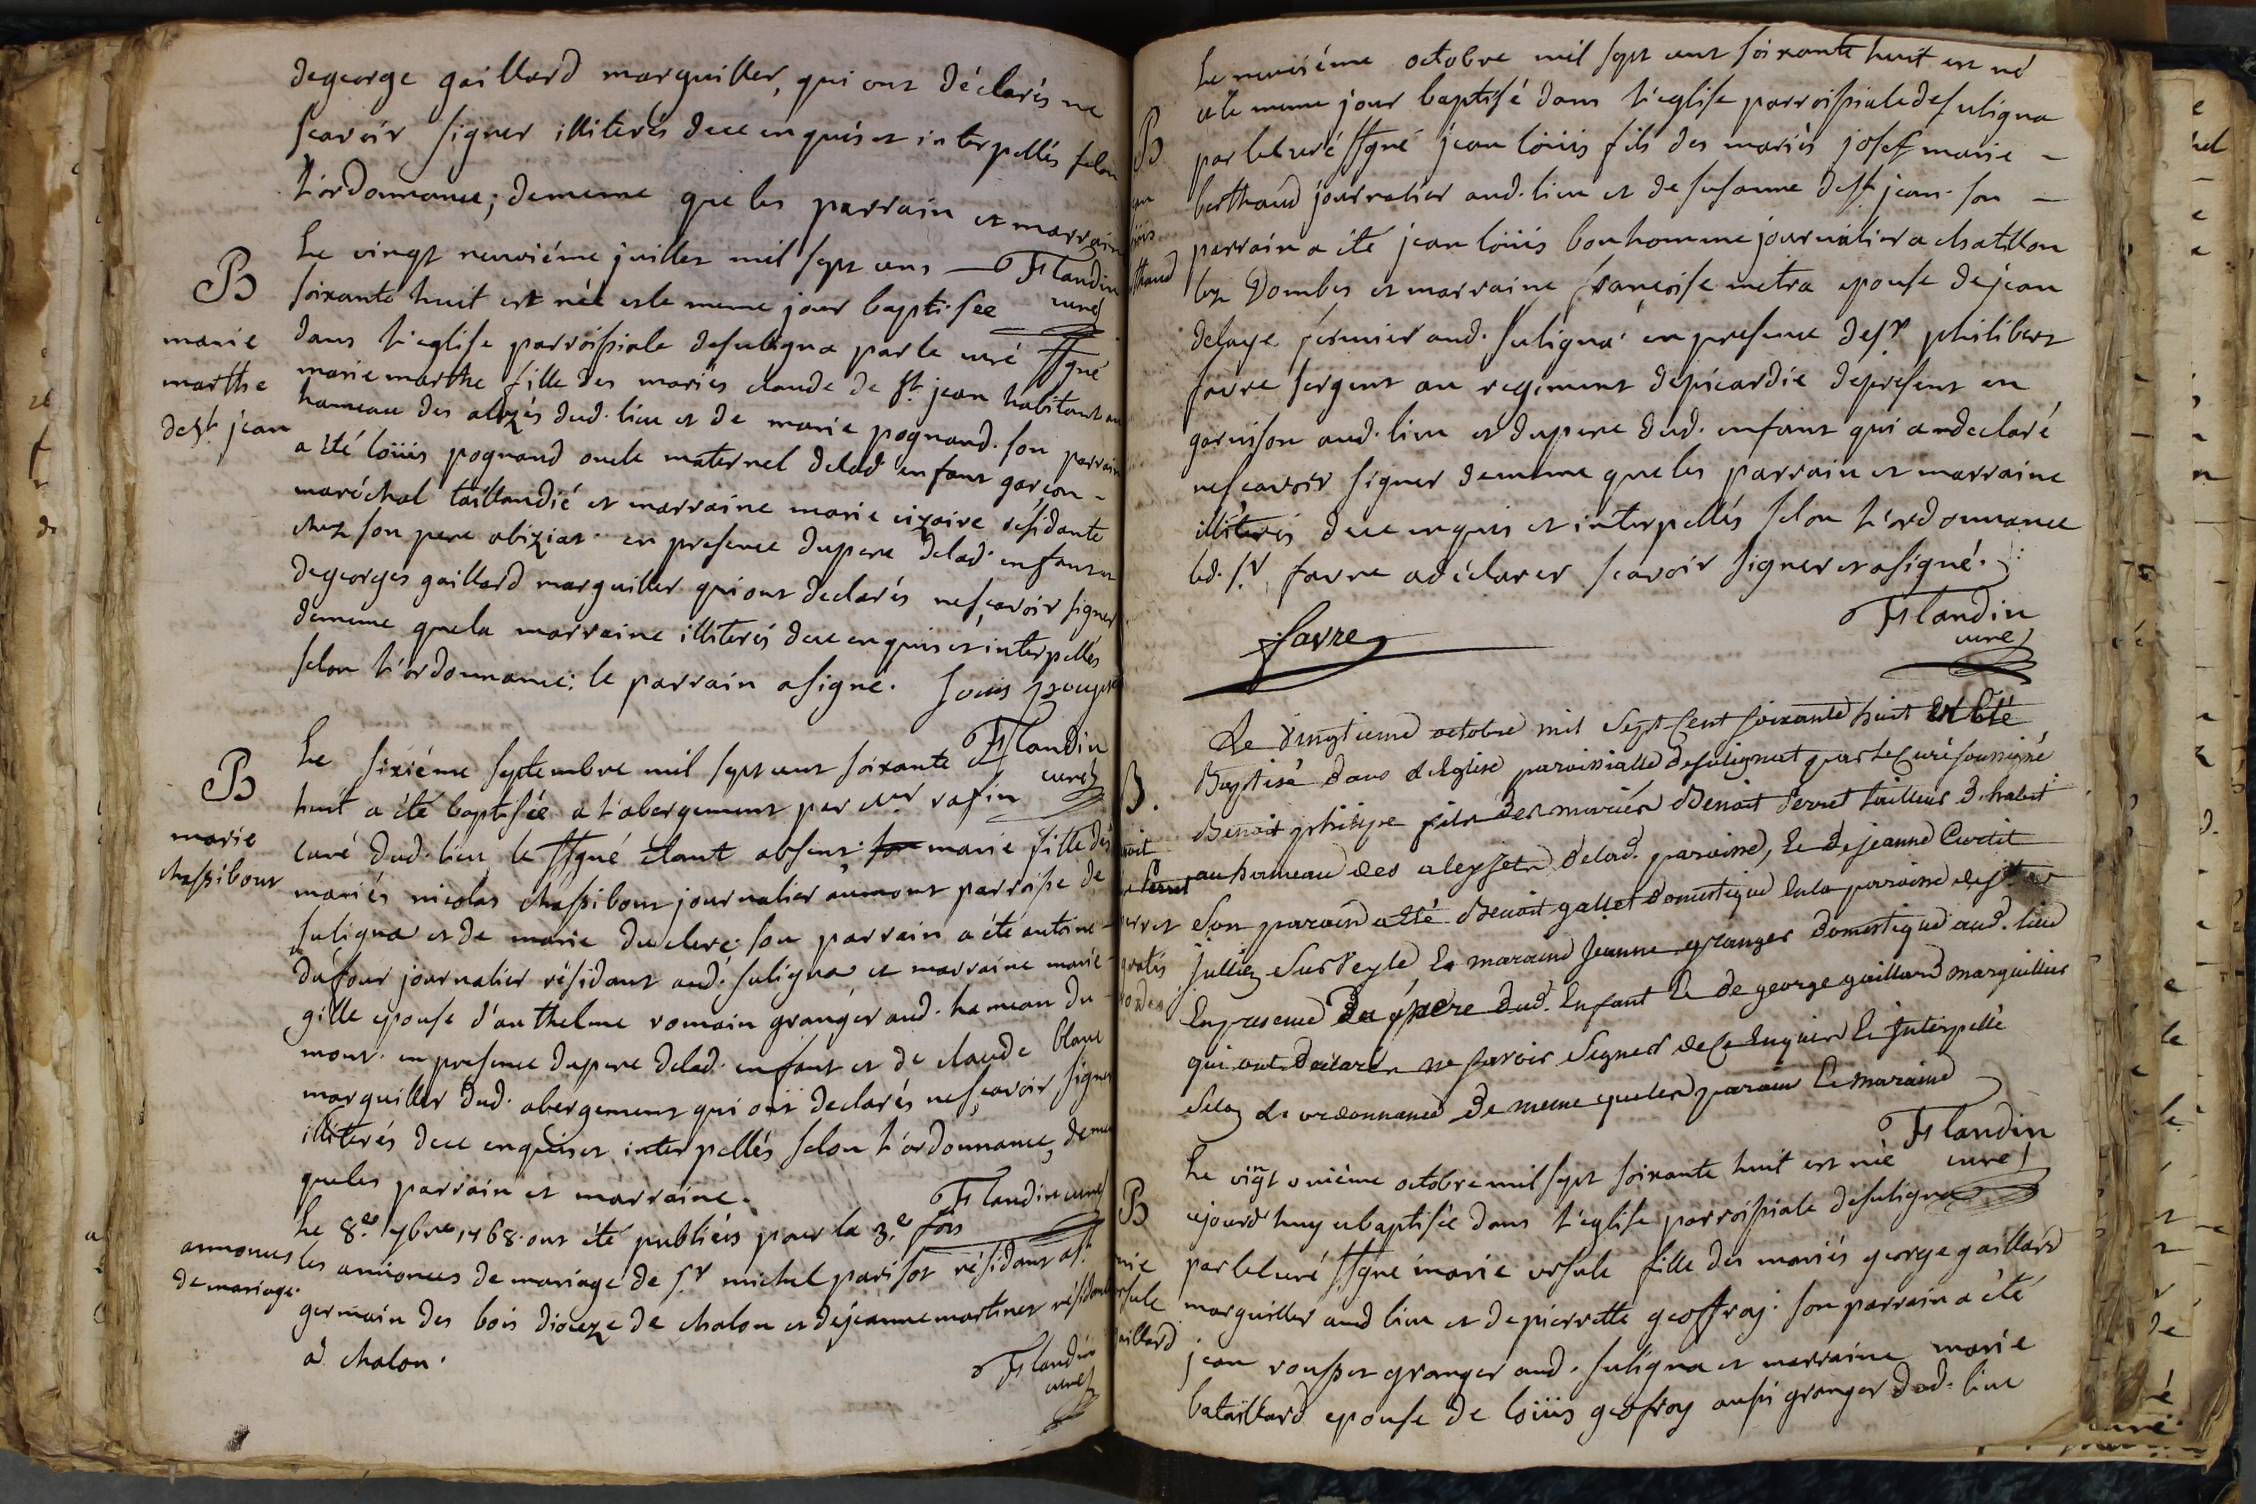 degeorge gaillard marguiller, qui ont déclarés ne
scavoir signer illiterés dece enquis et interpellés selon
l'ordonnance; dememe que les parrain et marraine
Flandin
curé
B
marie
marthe
de St jean
Le vingt neuviéme juillet mil sept cens
soixante huit est née et le meme jour baptisée
dans l'eglise parroissiale desuligna par le curé ssgné
marie marthe fille des mariés claude de St jean habitant au
hameau des aleyzés dud. lieu et de marie pognand. son parrain
a été loüis pognand oncle maternel delad. enfant garçon
maréchal taillandié et marraine marie vizaire résidante
chez son pere abiziat. en presence dupere delad. enfant et
degeorges gaillard marguiller qui ont declarés nesçavoir signer
dememe quela marraine illiterés dece enquis et interpellés
selon l'ordonnance; le parrain asigné. Louis
Flandin
curé
B
marie
chassibout
Le sixiéme septembre mil sept cent soixante
huit a été baptisée a l'abergement par Mr rafin
curé dud. lieu le ssgné étant absent. marie fille des
mariés nicolas chassibout journalier aumont parroisse de
suligna et de marie duclerc. son parrain a été antoine
dufour journalier résidant aud. suligna et marraine marie
gille epouse d'anthelme romain granger aud. hameau du
mont. en presence dupere delad. enfant et de claude blanc
marguiller dud. abergement qui ont declarés nesçavoir signer
illiterés dece enquis et interpellés selon l'ordonnance, deme
queles parrain et marraine.
Flandin curé
annonces
de mariage.
Le 8.e 7bre 1768. ont été publiées pour la 3.e fois
les annonces de mariage de Sr michel parisot résidant a St
germain des bois dioceze de chalon et dejeanne martinet résidante
ad. chalon.
Flandin
curé
B
Le neuviéme octobre mil sept cent soixante huit est né
et le meme jour baptisé dans l'eglise parroissiale desuligna
par lecuré ssgné jean loüis fils des mariés josef marie
berthaud journalier aud. lieu et de susanne dest jean. son
parrain a été jean loüis bonhomme journalier a chatillon
lez Dombes et marraine françoise metra epouse dejean
delaye fermier aud. suligna en presence desr philibert
favre sergent au regiment depicardie depresent en
garnison aud. lieu et dupere dud. enfant qui a declaré
nesçavoir signer dememe queles parrain et marraine
illiterés dece enquis et interpellés selon l'ordonnance
led. sr favre adéclarer scavoir signer et asigné.
Favre
Flandin
curé
B.
Le vingtieme octobre mil sept cent soixante huit est été
Baptisé dans l'Eglise paroissialle desulignat par le Curé soussigné
Benoit philipe fils des mariés Benoit Perret tailleur d. habit
au hameau des aleysets delad. paroisse, Et dejeanne Curtit
Son parain a été Benoit gallet domestique en la paroisse de St
Jullien Sur Veyle, Et maraine Jeanne granger domestique aud. lieu
En presence du pere dud. Enfant Et de george gaillard marguillier
qui ont declarés ne savoir Signer de ce Enquis Et Interpellé
Selon L'ordonnance de meme que les parain Et maraine
Flandin
curé
B
Le vingt uniéme octobre mil sept soixante huit est née
ajourd'huy et baptisée dans l'eglise parroissiale desuligna
par lecuré ssgné marie ursule fille des mariés george gaillard
marguiller aud lieu et de pierrette geoffray. son parrain a été
jean rousset granger aud. suligna et marraine marie
bataillard epouse de loüis geofroy aussi granger dud. lieu